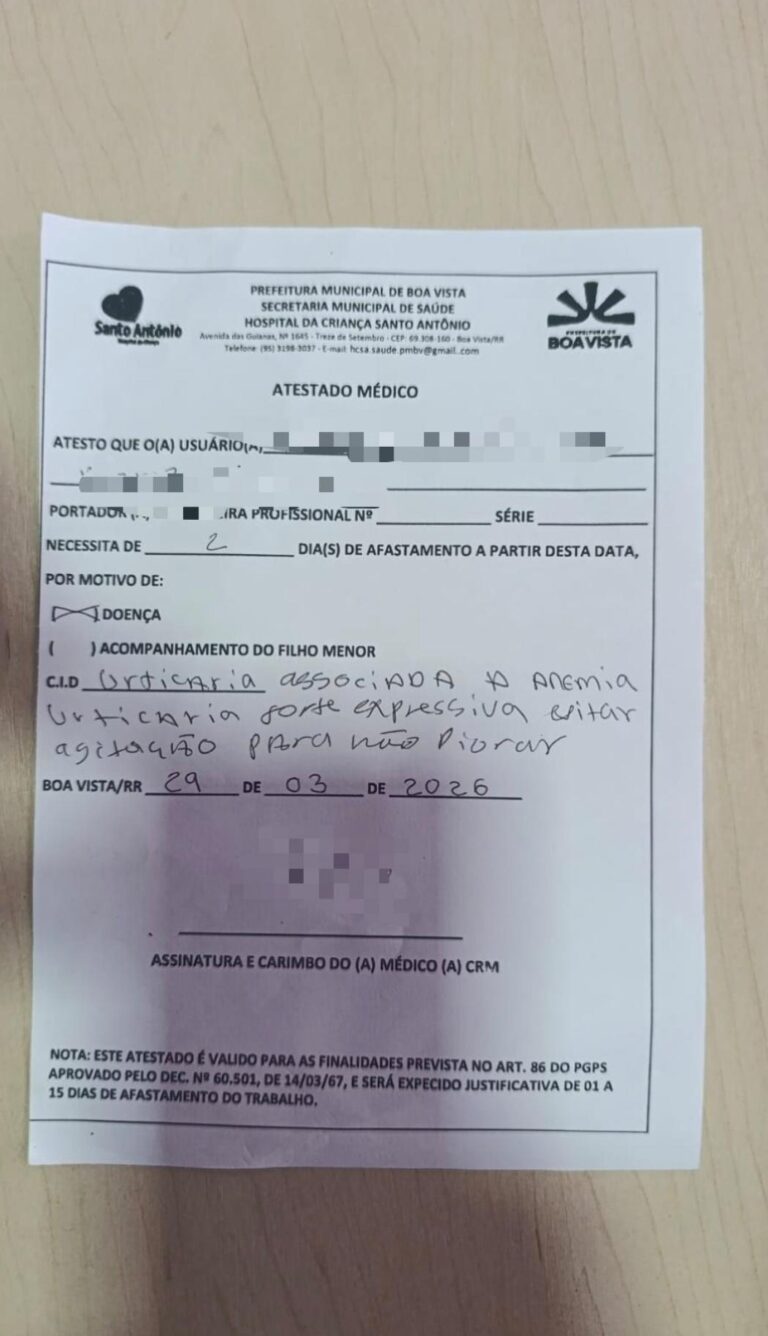 Santo Antônio
PREFEITURA MUNICIPAL DE BOA VISTA
SECRETARIA MUNICIPAL DE SAÚDE
HOSPITAL DA CRIANÇA SANTO ANTÔNIO
Avenida das Guianas, Nº 1645 - Treze de Setembro - CEP: 69.308-160 - Boa Vista/RR
Telefone: (95) 3198-3037 - E-mail: hcsa.saude.pmbv@gmail.com
PREFEITURA DE
BOA VISTA
ATESTADO MÉDICO
ATESTO QUE O(A) USUÁRIO(A)
PORTADOR PROFISSIONAL Nº SÉRIE
NECESSITA DE 2 DIA(S) DE AFASTAMENTO A PARTIR DESTA DATA,
POR MOTIVO DE:
DOENÇA
( ) ACOMPANHAMENTO DO FILHO MENOR
C.I.D Urticaria associADA A Anemia
Urticaria forte expressiva evitar
agitação para não Piorar
BOA VISTA/RR 29 DE 03 DE 2026
ASSINATURA E CARIMBO DO (A) MÉDICO (A) CRM
NOTA: ESTE ATESTADO É VALIDO PARA AS FINALIDADES PREVISTA NO ART. 86 DO PGPS
APROVADO PELO DEC. Nº 60.501, DE 14/03/67, E SERÁ EXPECIDO JUSTIFICATIVA DE 01 A
15 DIAS DE AFASTAMENTO DO TRABALHO.